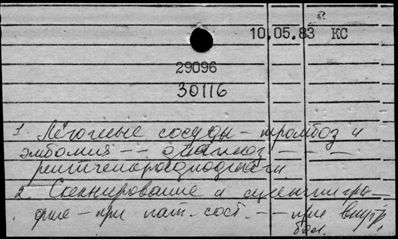 10.05.83 КС
29096
30116
1. Лёгочные сосуды - тромбоз и
эмболия -- диагноз - - -
рентгенорадиодиагности
2. Сканирование и сцинтигра-
фия - при пат. сост. - - при внутр.
бол.